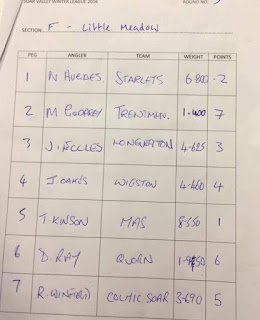 SOAR VALLEY WINTER LEAGUE 2018 ROUND NO:
SECTION F - Little Meadow
PEG ANGLER TEAM WEIGHT POINTS
1 N HUGHES. STARLETS 6-800 -2
2 M GODFREY TRENTMAN. 1-400 7
3 J. ECCLES LONGEATON 4-625 3
4 J. OAKES WIGSTON 4-460 4
5 T. KINSON MAS 8-550 1
6 D. RAY QUORN 6
7 R. WINFIELD COLMIC SOAR 3-690 5